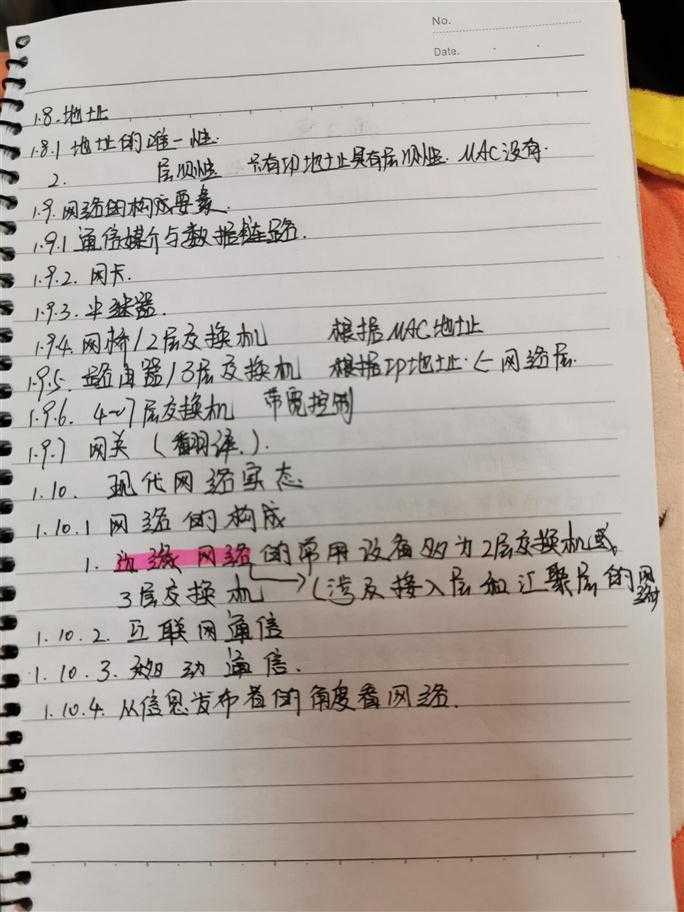 No.
Date.
1.8. 地址
1.8.1 地址的唯一性.
2. 层次性 只有IP地址具有层次性. MAC没有.
1.9. 网络的构成要素.
1.9.1 通信媒介与数据链路.
1.9.2. 网卡.
1.9.3. 中继器.
1.9.4. 网桥/2层交换机 根据MAC地址
1.9.5. 路由器/3层交换机 根据IP地址. ← 网络层.
1.9.6. 4~7层交换机 带宽控制
1.9.7 网关 (翻译.).
1.10. 现代网络实态
1.10.1 网络的构成
1. 边缘网络的常用设备多为2层交换机或
3层交换机 → (涉及接入层和汇聚层的网络)
1.10.2. 互联网通信
1.10.3. 移动通信.
1.10.4. 从信息发布者的角度看网络.